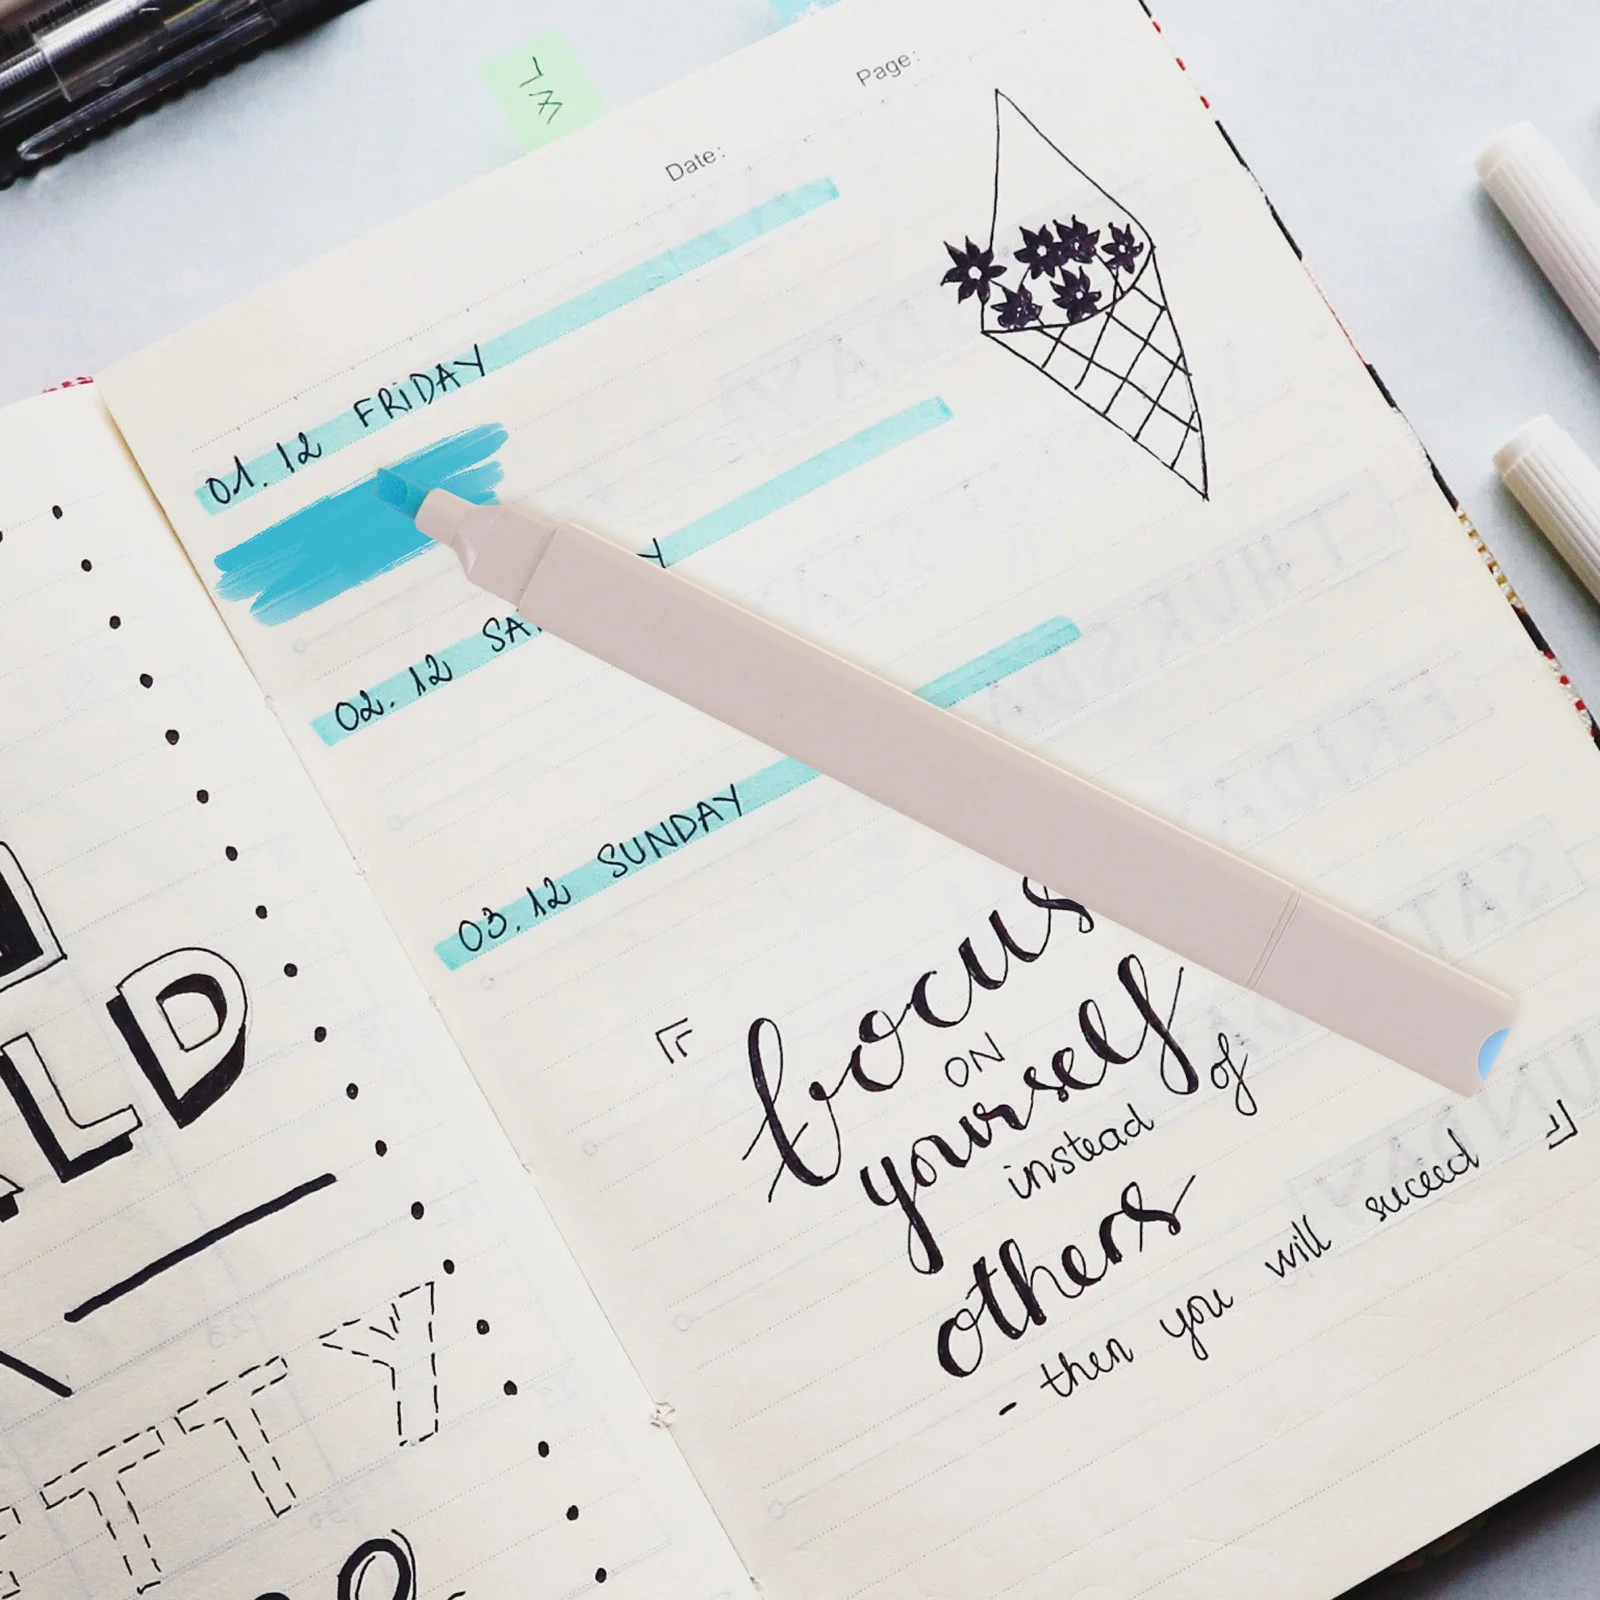 Page:
Date:
01.12 FRIDAY
02.12 SA
Y
03.12 SUNDAY
focus
ON
yourself
instead of
others
- then you will suceed
LD
TTY